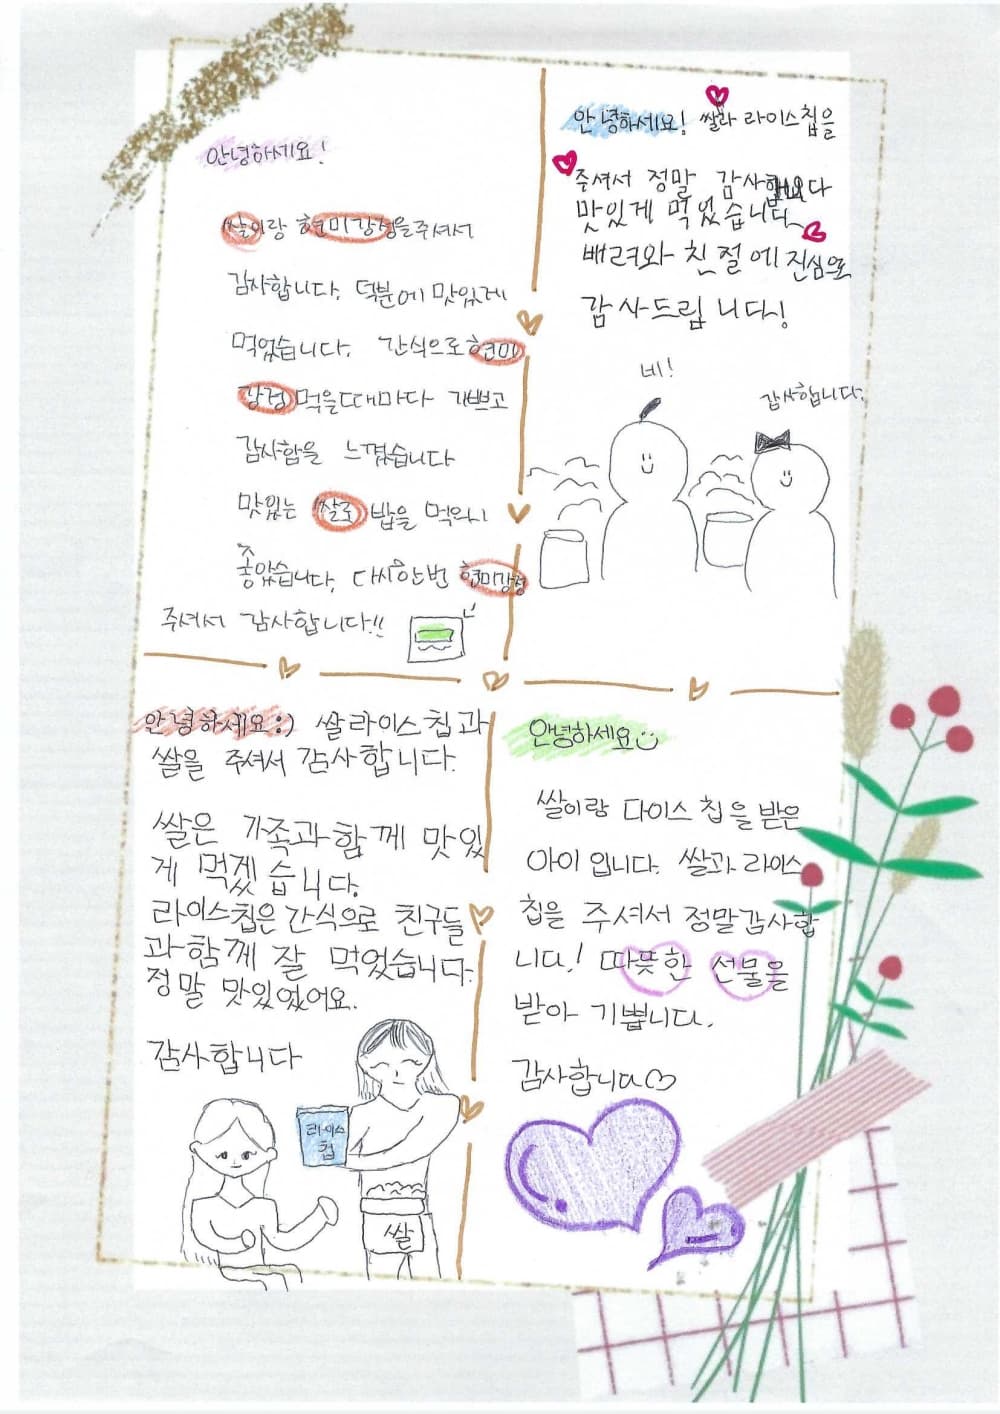 안녕하세요!
쌀이랑 현미강정을 주셔서
감사합니다. 덕분에 맛있게
먹었습니다. 간식으로 현미
강정 먹을때마다 기쁘고
감사함을 느꼈습니다
맛있는 쌀로 밥을 먹어서
좋았습니다. 다시한번 현미강정
주셔서 감사합니다!!
안녕하세요! 쌀과 라이스칩을
주셔서 정말 감사합니다
맛있게 먹었습니다
배려와 친절에 진심으로
감사드립니다!
네!
감사합니다.
안녕하세요:) 쌀라이스칩과
쌀을 주셔서 감사합니다.
쌀은 가족과함께 맛있
게 먹겠습니다.
라이스칩은 간식으로 친구들
과함께 잘 먹었습니다.
정말 맛있었어요.
감사합니다
라이스
칩
쌀
안녕하세요
쌀이랑 라이스 칩을 받은
아이 입니다. 쌀과 라이스
칩을 주셔서 정말감사합
니다! 따뜻한 선물을
받아 기쁩니다.
감사합니다♡